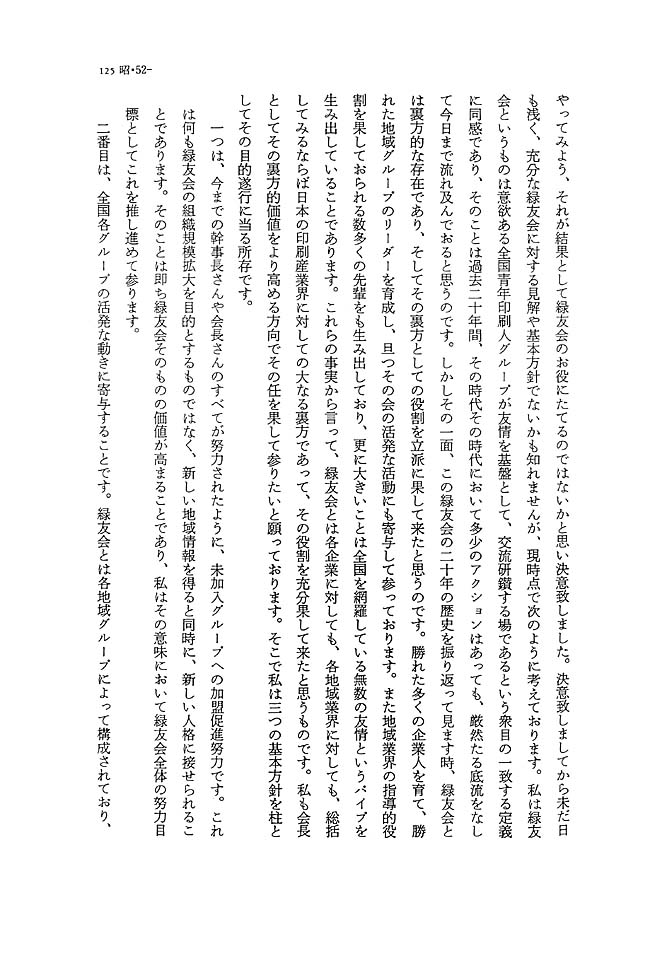 125 昭・52-
やってみよう、それが結果として緑友会のお役にたてるのではないかと思い決意致しました。決意致しましてから未だ日
も浅く、充分な緑友会に対する見解や基本方針でないかも知れませんが、現時点で次のように考えております。私は緑友
会というものは意欲ある全国青年印刷人グループが友情を基盤として、交流研鑽する場であるという衆目の一致する定義
に同感であり、そのことは過去二十年間、その時代その時代において多少のアクションはあっても、厳然たる底流をなし
て今日まで流れ及んでおると思うのです。しかしその一面、この緑友会の二十年の歴史を振り返って見ます時、緑友会と
は裏方的な存在であり、そしてその裏方としての役割を立派に果して来たと思うのです。勝れた多くの企業人を育て、勝
れた地域グループのリーダーを育成し、且つその会の活発な活動にも寄与して参っております。また地域業界の指導的役
割を果しておられる数多くの先輩をも生み出しており、更に大きいことは全国を網羅している無数の友情というパイプを
生み出していることであります。これらの事実から言って、緑友会とは各企業に対しても、各地域業界に対しても、総括
してみるならば日本の印刷産業界に対しての大なる裏方であって、その役割を充分果して来たと思うものです。私も会長
としてその裏方的価値をより高める方向でその任を果して参りたいと願っております。そこで私は三つの基本方針を柱と
してその目的遂行に当る所存です。
一つは、今までの幹事長さんや会長さんのすべてが努力されたように、未加入グループへの加盟促進努力です。これ
は何も緑友会の組織規模拡大を目的とするものではなく、新しい地域情報を得ると同時に、新しい人格に接せられるこ
とであります。そのことは即ち緑友会そのものの価値が高まることであり、私はその意味において緑友会全体の努力目
標としてこれを推し進めて参ります。
二番目は、全国各グループの活発な動きに寄与することです。緑友会とは各地域グループによって構成されており、